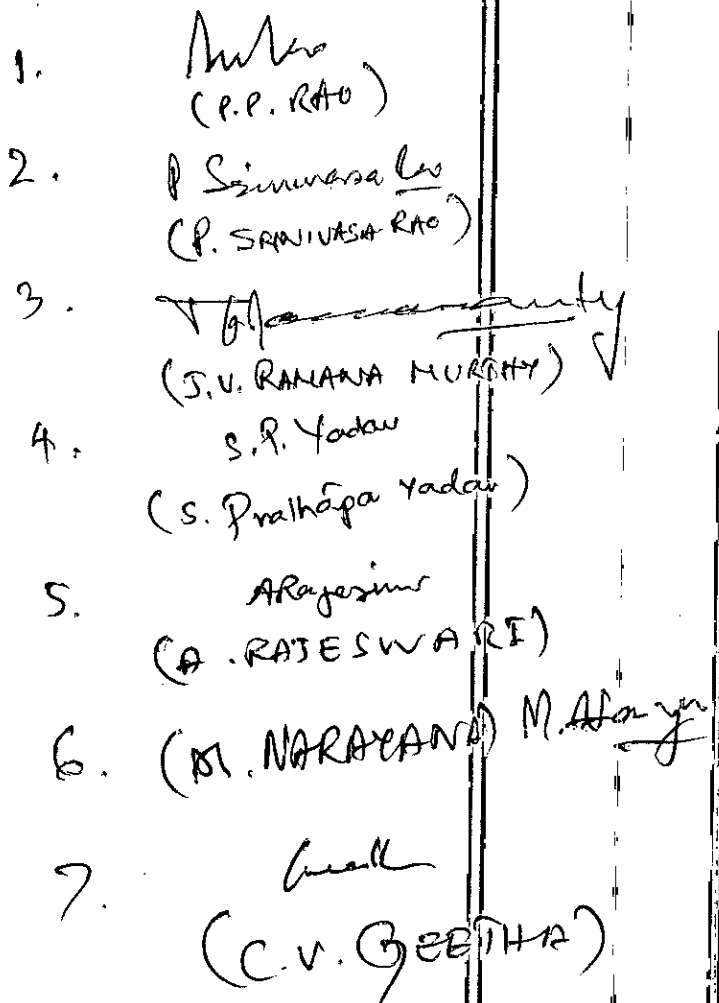 1.
(P.P. RAO)
2. P Srinivasa Rao
(P. SRINIVASA RAO)
3.
(J.V. RAMANA MURTHY)
4. S.P. Yadav
(S. Prathāpa Yadav)
5. ARajeswari
(A. RAJESWARI)
6. (M. NARAYANA) M.
7.
(C.V. GEETHA)